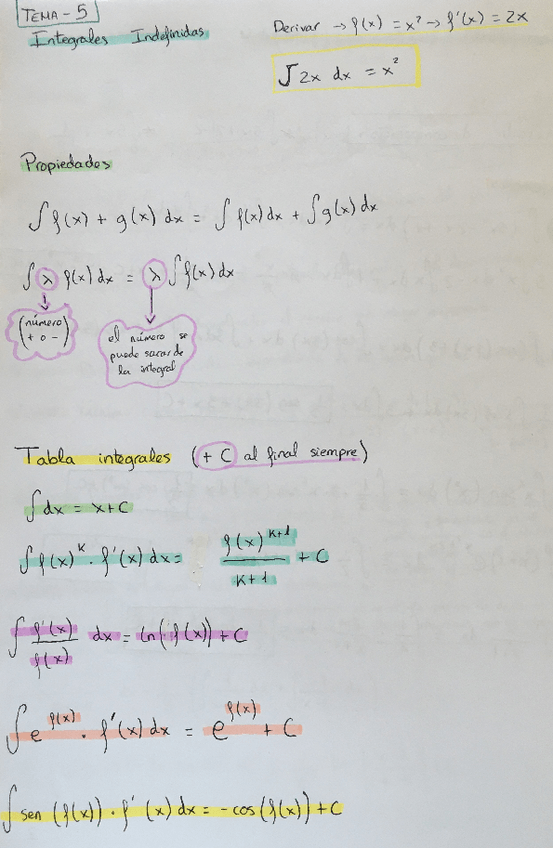 TEMA - 5
Integrales Indefinidas
Derivar → f(x) = x² → f'(x) = 2x
∫ 2x dx = x²
Propiedades
∫ f(x) + g(x) dx = ∫ f(x) dx + ∫ g(x) dx
∫ λ f(x) dx = λ ∫ f(x) dx
(número
+ o -)
el número se
puede sacar de
la integral
Tabla integrales (+ C al final siempre)
∫ dx = x + C
∫ f(x)^k · f'(x) dx = f(x)^(k+1) / (k+1) + C
∫ f'(x) / f(x) dx = ln(f(x)) + C
∫ e^f(x) · f'(x) dx = e^f(x) + C
∫ sen (f(x)) · f'(x) dx = -cos (f(x)) + C